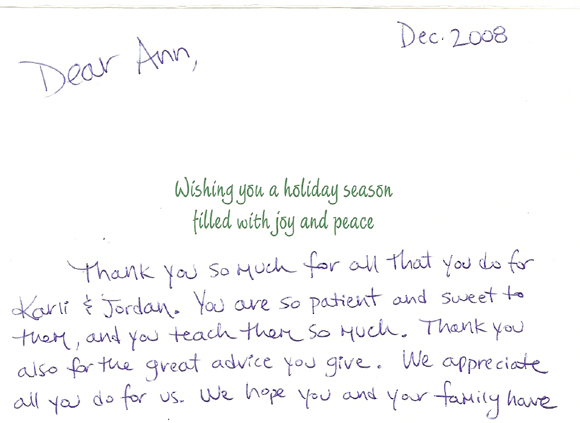 Dec. 2008
Dear Ann,
Wishing you a holiday season
filled with joy and peace
Thank you so much for all that you do for
Karli & Jordan. You are so patient and sweet to
them, and you teach them so much. Thank you
also for the great advice you give. We appreciate
all you do for us. We hope you and your family have